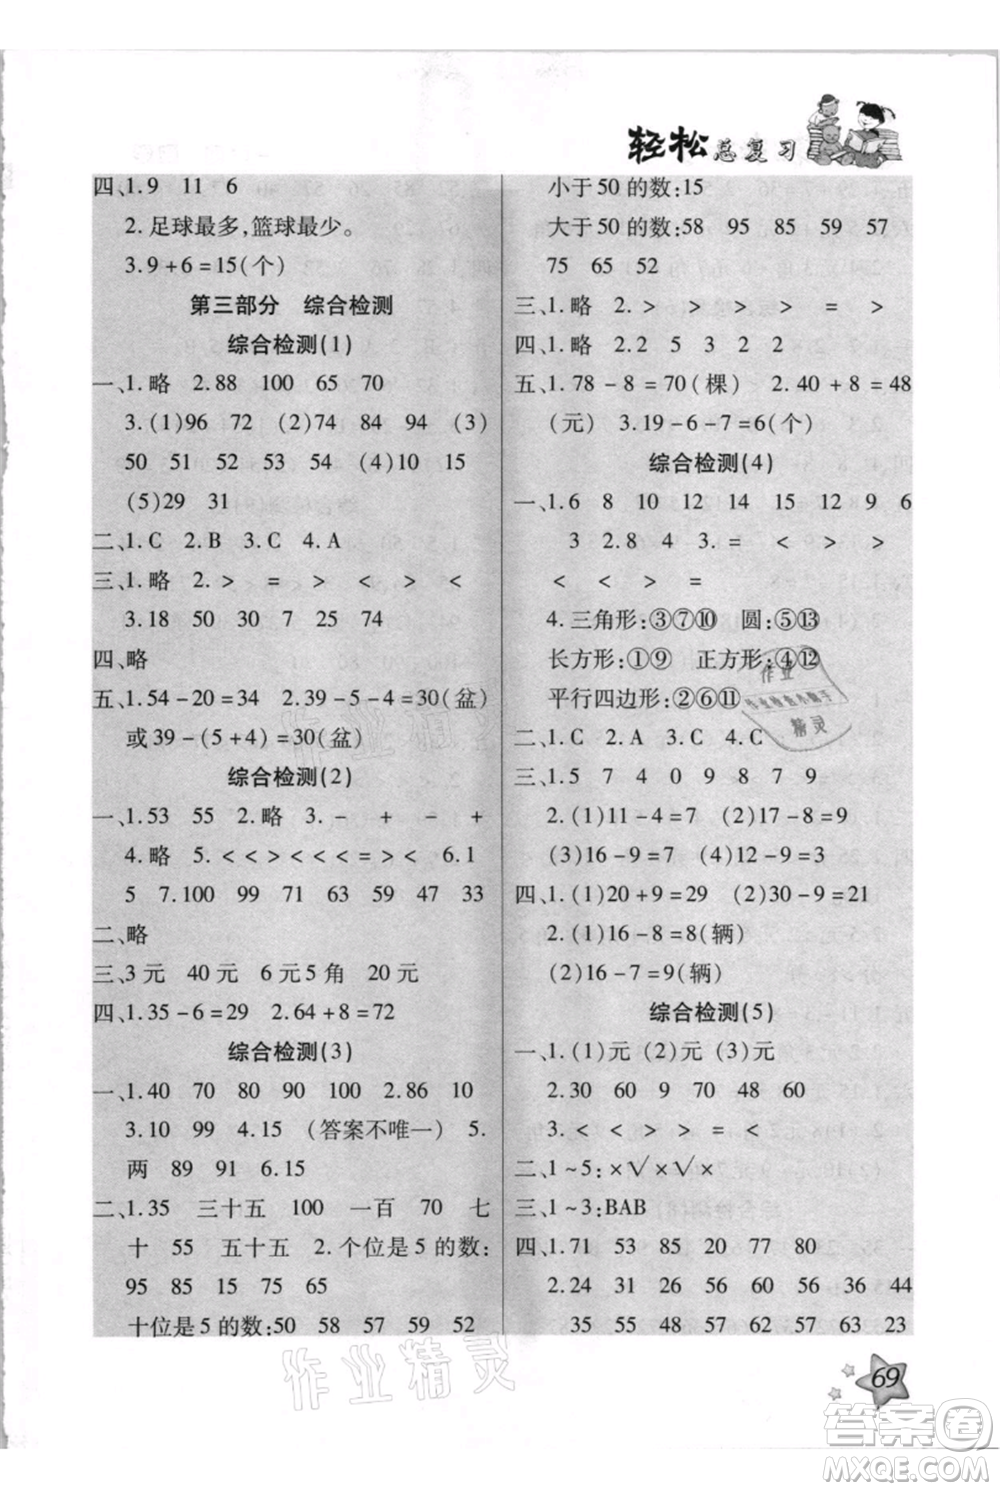 轻松总复习
四、1.9 11 6
2.足球最多,篮球最少。
3.9+6=15(个)
第三部分 综合检测
综合检测(1)
一、1.略 2.88 100 65 70
3.(1)96 72 (2)74 84 94 (3)
50 51 52 53 54 (4)10 15
(5)29 31
二、1.C 2.B 3.C 4.A
三、1.略 2.> > = > < > <
3.18 50 30 7 25 74
四、略
五、1.54-20=34 2.39-5-4=30(盆)
或39-(5+4)=30(盆)
综合检测(2)
一、1.53 55 2.略 3.- + - +
4.略 5.< < > < < < = > < 6.1
5 7.100 99 71 63 59 54 33
二、略
三、3元 40元 6元5角 20元
四、1.35-6=29 2.64+8=72
综合检测(3)
一、1.40 70 80 90 100 2.86 10
3.10 99 4.15 (答案不唯一) 5.
两 89 91 6.15
二、1.35 三十五 100 一百 70 七
十 55 五十五 2.个位是5的数:
95 85 15 75 65
十位是5的数:50 58 57 59 52
小于50的数:15
大于50的数:58 95 85 59 57
75 65 52
三、1.略 2.< > > > > = >
四、1.略 2.2 5 3 2 2
五、1.78-8=70(棵) 2.40+8=48
(元) 3.19-6-7=6(个)
综合检测(4)
一、1.6 8 10 12 14 15 12 9 6
3 2.8 4 3.= < > >
< < > = =
4.三角形:③⑦⑩ 圆:⑤⑬
长方形:①⑨ 正方形:④⑫
平行四边形:②⑥⑪
二、1.C 2.A 3.C 4.C
三、1.5 7 4 0 9 8 7 9
2.(1)11-4=7 (2)17-8=9
(3)16-9=7 (4)12-9=3
四、1.(1)20+9=29 (2)30-9=21
2.(1)16-8=8(辆)
(2)16-7=9(辆)
综合检测(5)
一、1.(1)元 (2)角 (3)元
2.30 60 9 70 48 60
3.> < < > > = <
二、1~5:×√×√×
三、1~3:BAB
四、1.71 53 85 20 77 80
2.24 31 26 56 56 36 44
35 55 48 57 62 63 23
作业
作业检查小帮手
精灵
作业精灵
作业精灵
69
答案卷
MXQE.COM